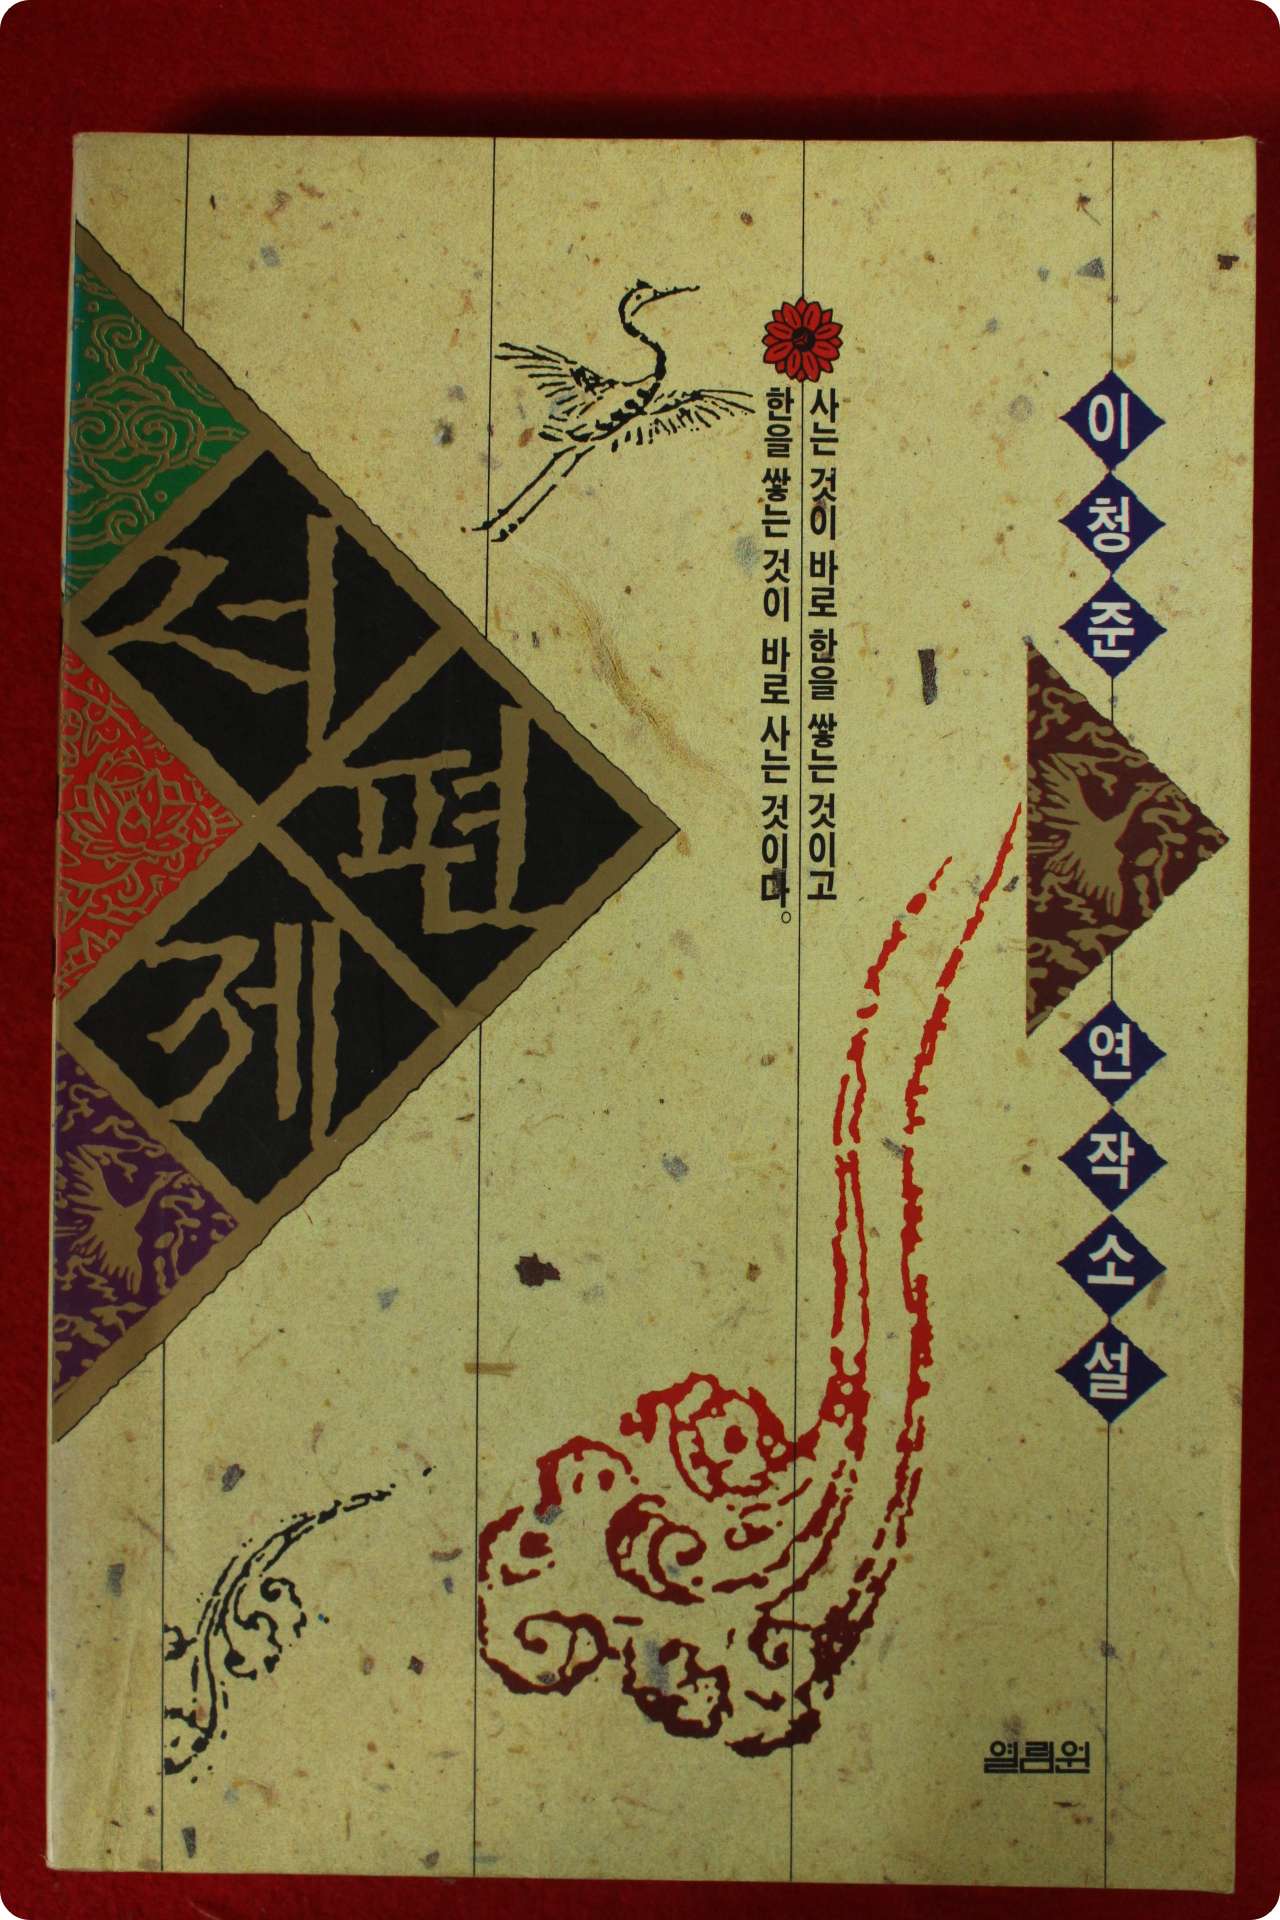 이청준
연작소설
사는 것이 바로 한을 쌓는 것이고
한을 쌓는 것이 바로 사는 것이다。
서편제
열림원